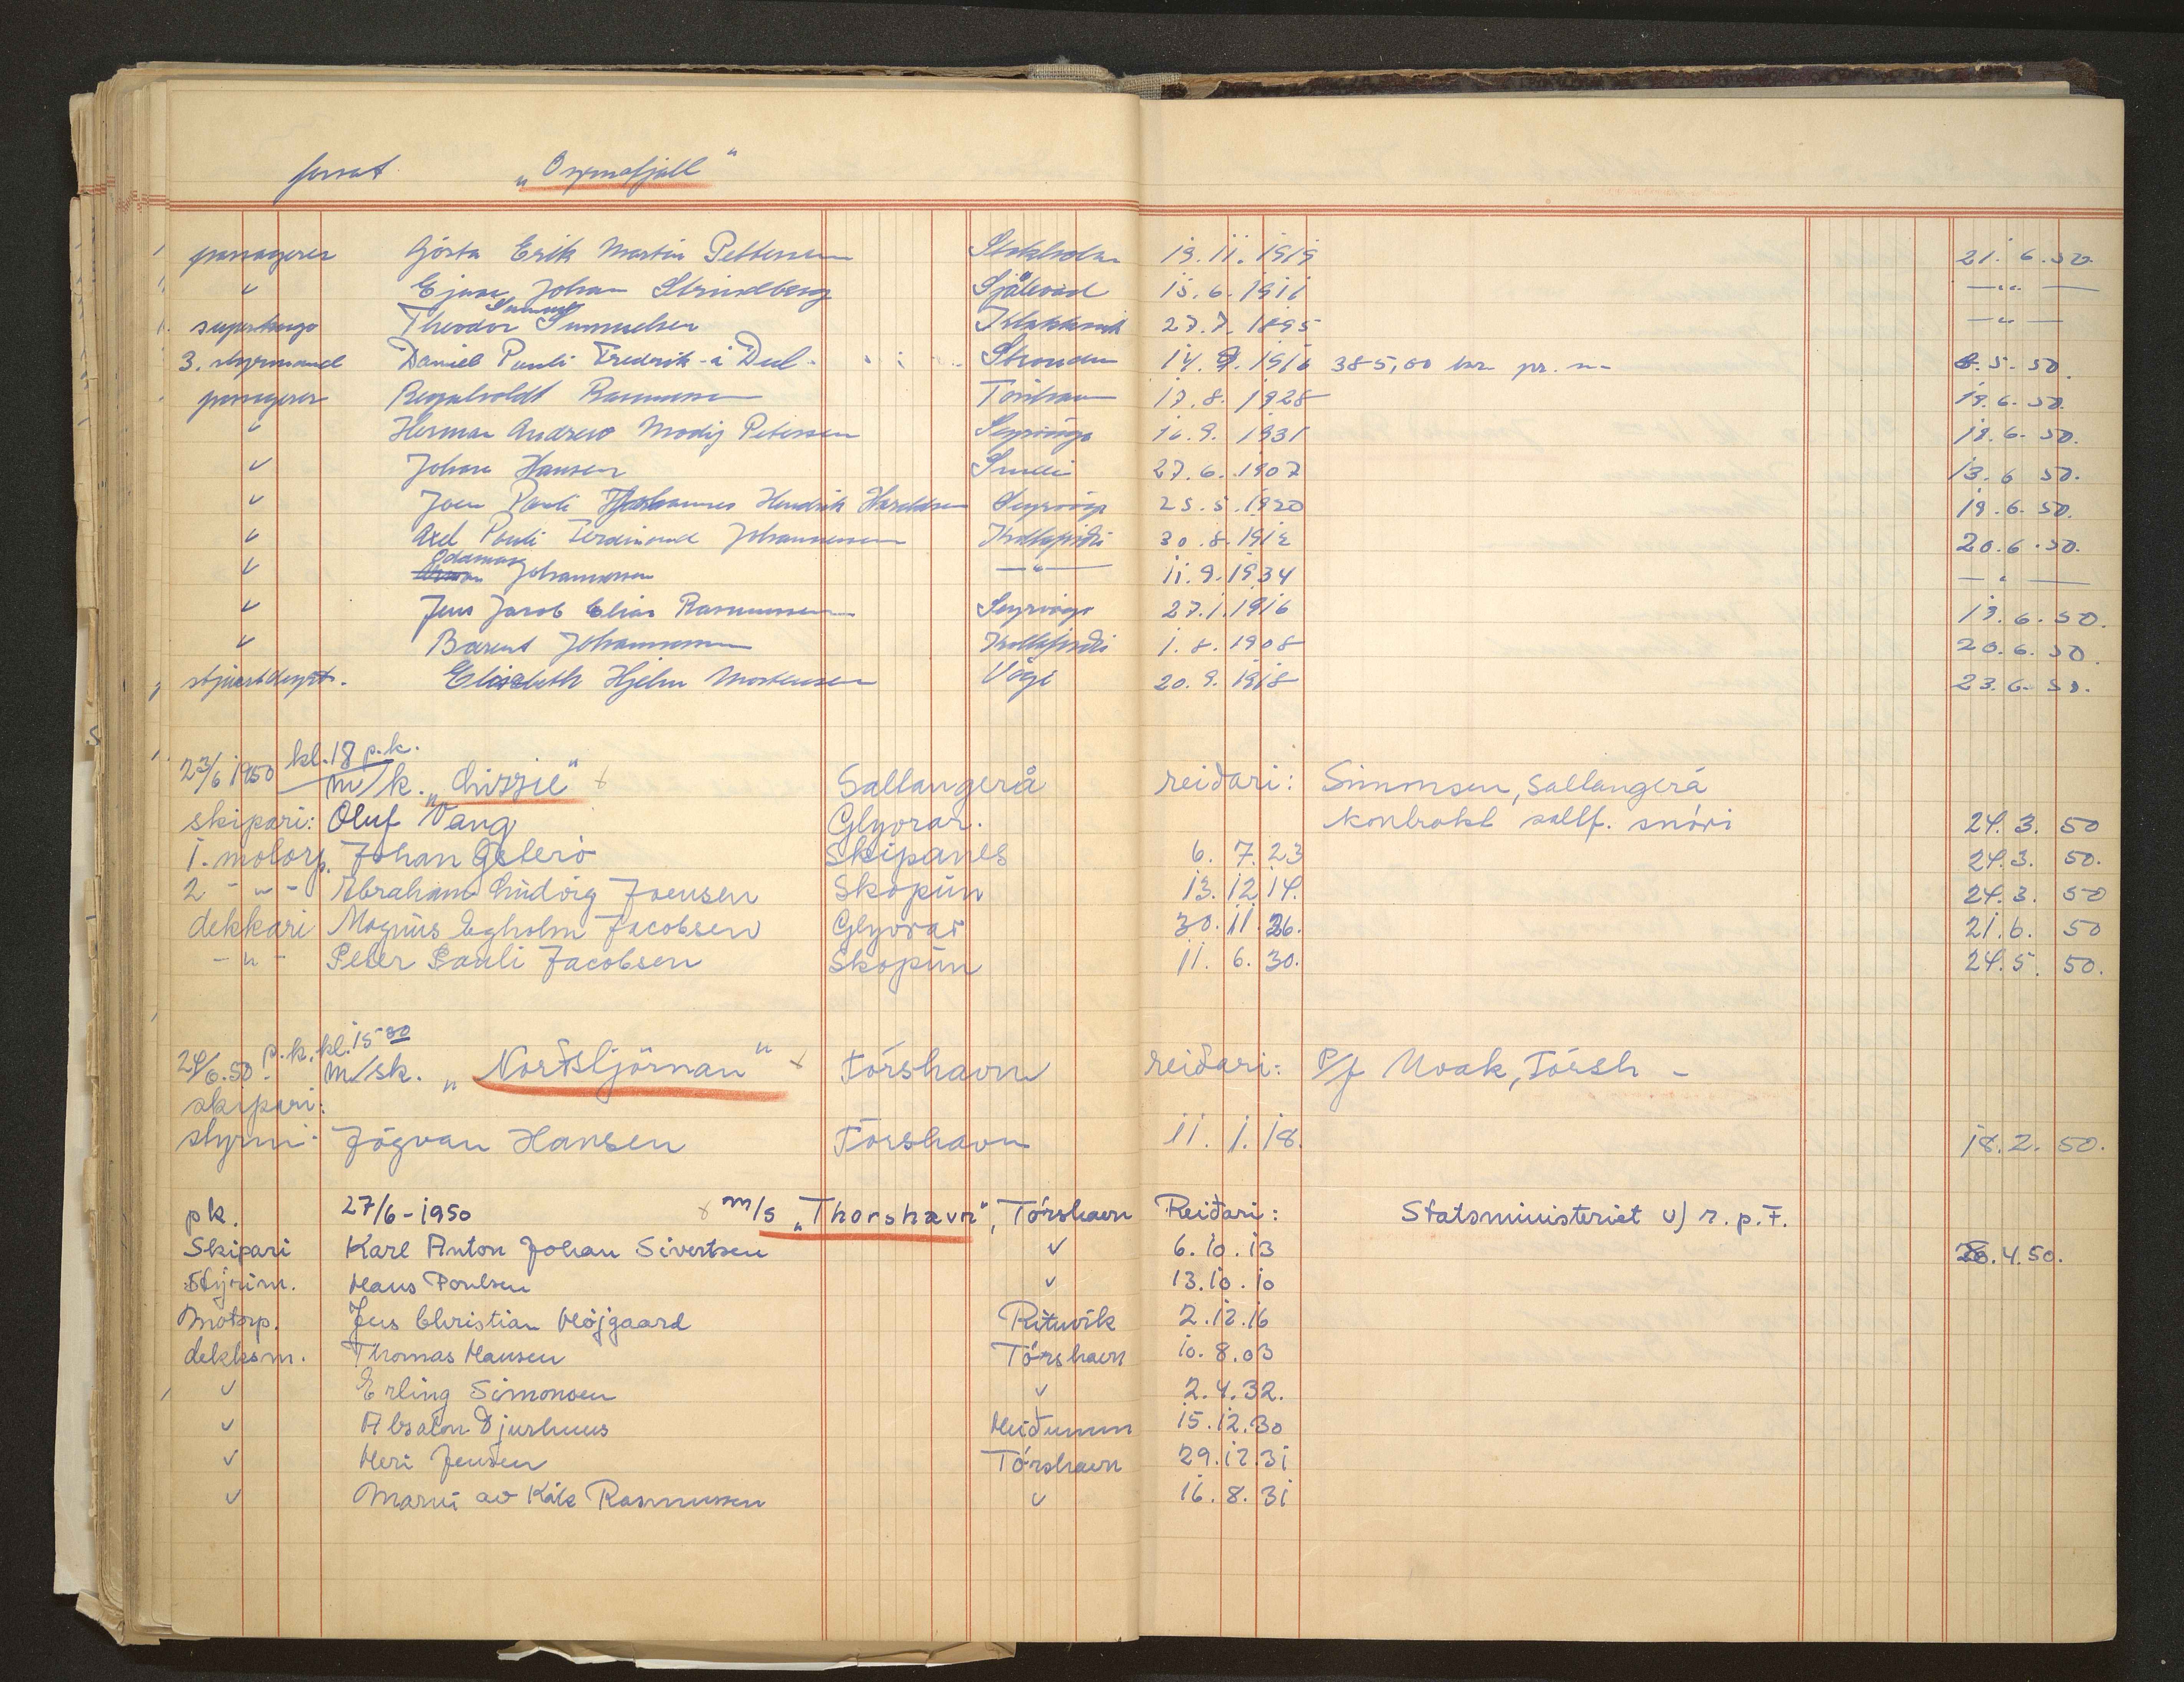 forsat „Oyrnafjall“
passagerer Gösta Erik Martin Pettersson Stokholm 19.11.1919 21.6.50.
" Ejnar Johan Strindberg Själevad 15.6.1911 — " —
superkargo Theodor Samuelsen Klakksvik 27.7.1895 — " —
3. styrmand Daniel Pauli Fredrik á Dul Strondum 14.9.1916 385,00 kr. pr. m. 8.5.50.
passagerer Rasmussen Tórshavn 17.8.1928 19.6.50.
" Herman Andreas Modig Petersen Seyrvágs 16.9.1931 19.6.50.
" Johan Hansen 27.6.1907 13.6.50.
" Joen Pauli Johannes Hendrik Haraldsen Seyrvágs 25.5.1920 19.6.50.
" Axel Pauli Ferdinand Johannesen Kollafirði 30.8.1912 20.6.50.
" Johannesen — " — 11.9.1934 — " —
" Jens Jacob Elias Rasmussen Seyrvágs 27.1.1916 19.6.50.
" Barent Johannesen Kollafirði 1.8.1908 20.6.50.
Elisabeth Hjelm Mortensen Vági 20.9.1918 23.6.50.
23/6 1950 kl. 18 p.k.
m/k. „Lizzie“ Saltangerá reiðari: Simonsen, Saltangerá
skipari: Oluf Vang Glyvrar. kontrakt saltf. snóri 24.3.50
1. motorp. Johan Østerø Skipanes 6.7.23 24.3.50.
2 - " - Abraham Ludvig Joensen Skopun 13.12.14. 24.3.50
dekkari Magnus Egholm Jacobsen Glyvrar 30.11.26. 21.6.50
- " - Peter Pauli Jacobsen Skopun 11.6.30. 24.5.50.
24/6.50. p.k. kl. 15 30
m/sk. „Norðstjörnan“ Tórshavn reiðari: P/f Noak, Tórsh -
skipari:
stýrim: Jógvan Hansen Tórshavn 11.1.18. 18.2.50.
pk. 27/6-1950 m/s „Thorshavn“, Tórshavn Reiðari: Statsministeriet v) r.p.F.
Skipari Karl Anton Johan Sivertsen " 6.10.13 20.4.50.
Stýrim. Hans Poulsen " 13.10.10
Motorp. Jens Christian Højgaard Rituvík 2.12.16
dekksm. Thomas Hansen Tórshavn 10.8.03
" Erling Simonsen " 2.4.32.
" Absalon Djurhuus Heiðunum 15.12.30
" Heri Jensen Tórshavn 29.12.31
" Marni av Kák Rasmussen " 16.8.31